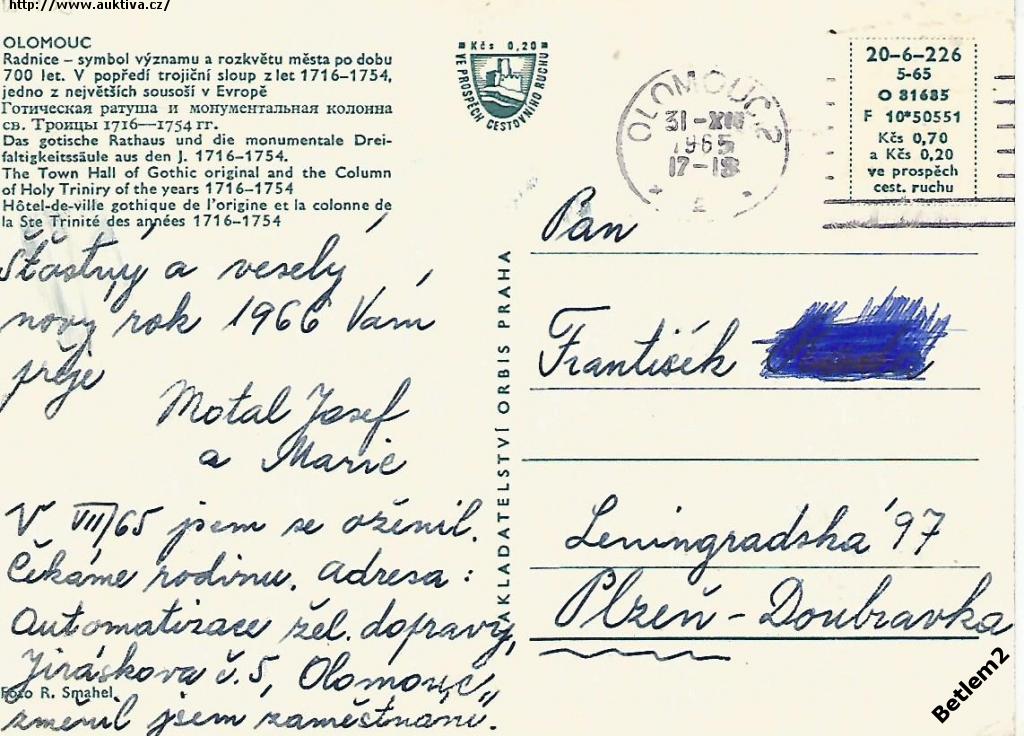 http://www.auktiva.cz/
OLOMOUC
Radnice – symbol významu a rozkvětu města po dobu
700 let. V popředí trojiční sloup z let 1716–1754,
jedno z největších sousoší v Evropě
Готическая ратуша и монументальная колонна
св. Троицы 1716—1754 гг.
Das gotische Rathaus und die monumentale Drei-
faltigkeitssäule aus den J. 1716–1754.
The Town Hall of Gothic original and the Column
of Holy Triniry of the years 1716–1754
Hôtel-de-ville gothique de l'origine et la colonne de
la Ste Trinité des années 1716–1754
Šťastný a veselý
nový rok 1966 Vám
přeje
Motal Josef
a Marie
V VII/65 jsem se oženil.
Čekáme rodinu. Adresa:
Automatizace žel. dopravy,
Jiráskova č. 5, Olomouc,,
změnil jsem zaměstnání.
Foto R. Smahel
Kčs 0,20
VE PROSPĚCH CESTOVNÍHO RUCHU
NAKLADATELSTVÍ ORBIS PRAHA
OLOMOUC 2
31-XII
1965
17-18
20-6-226
5-65
O 81685
F 10*50551
Kčs 0,70
a Kčs 0,20
ve prospěch
cest. ruchu
Pan
František
Leningradská 97
Plzeň - Doubravka
Betlem2